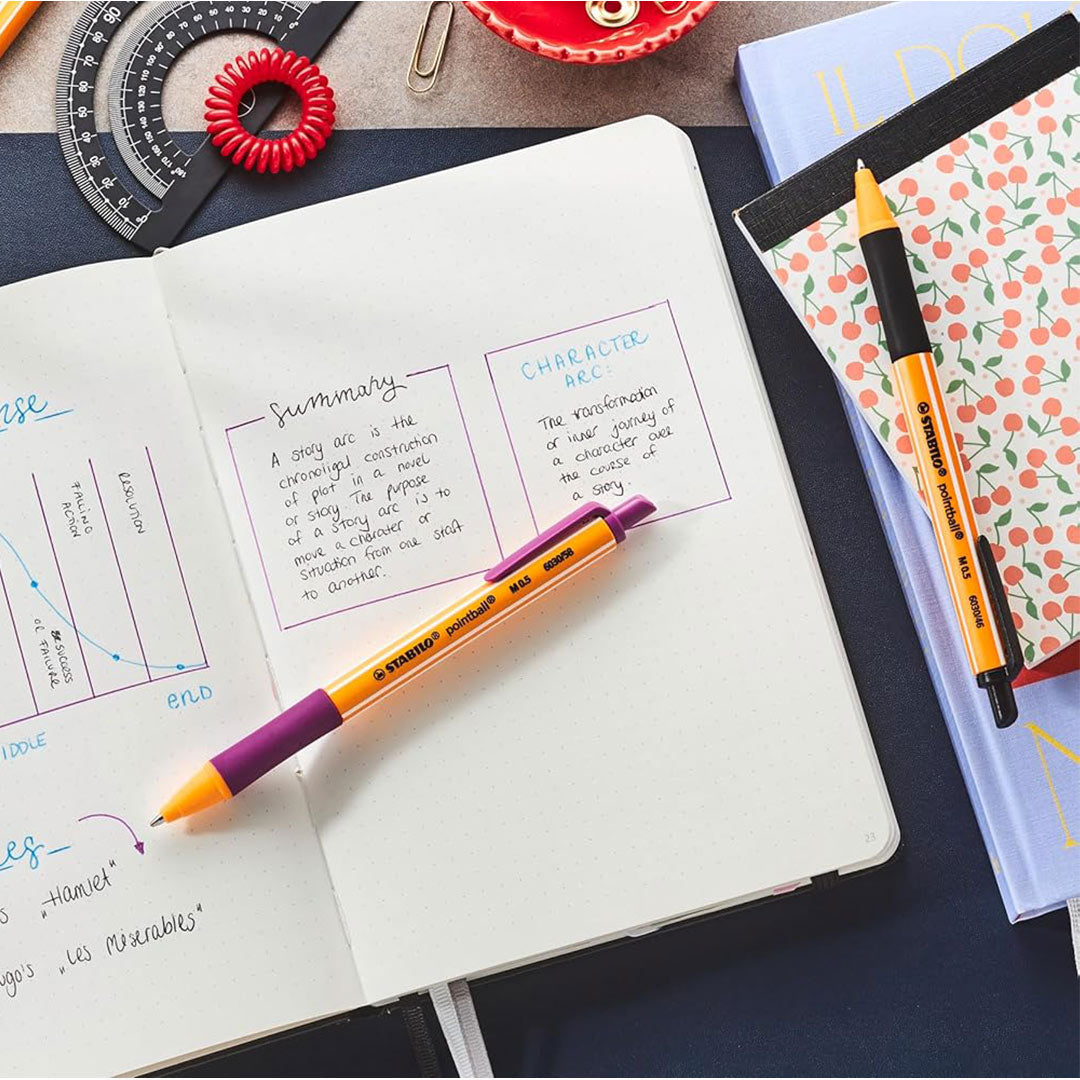 FALLING
ACTION
RESOLUTION
SUCCESS
OR FAILURE
END
"Hamlet"
„Les Miserables"
Summary
A story arc is the
chronoligal construction
of plot in a novel
or story. The purpose
of a story arc is to
move a charater or
situation from one staft
to another.
CHARACTER
ARC:
The transformation
or inner journey of
a character over
the course of
a story.
23
STABILO® pointball® M 0.5 6030/58
STABILO® pointball® M 0.5 6030/46
IL DO